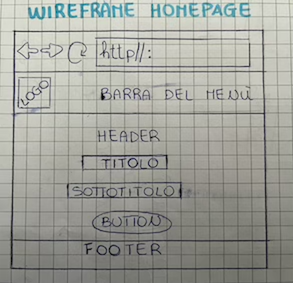 WIREFRAME HOMEPAGE
http//:
LOGO
BARRA DEL MENÙ
HEADER
TITOLO
SOTTOTITOLO
BUTTON
FOOTER